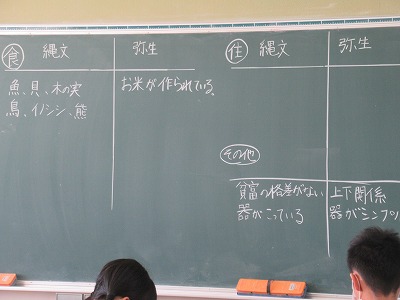 食 縄文 弥生
魚、貝、木の実
鳥、イノシシ、熊
お米が作られている、
住 縄文 弥生
その他
貧富の格差がない
器がこっている
上下関係
器がシンプ